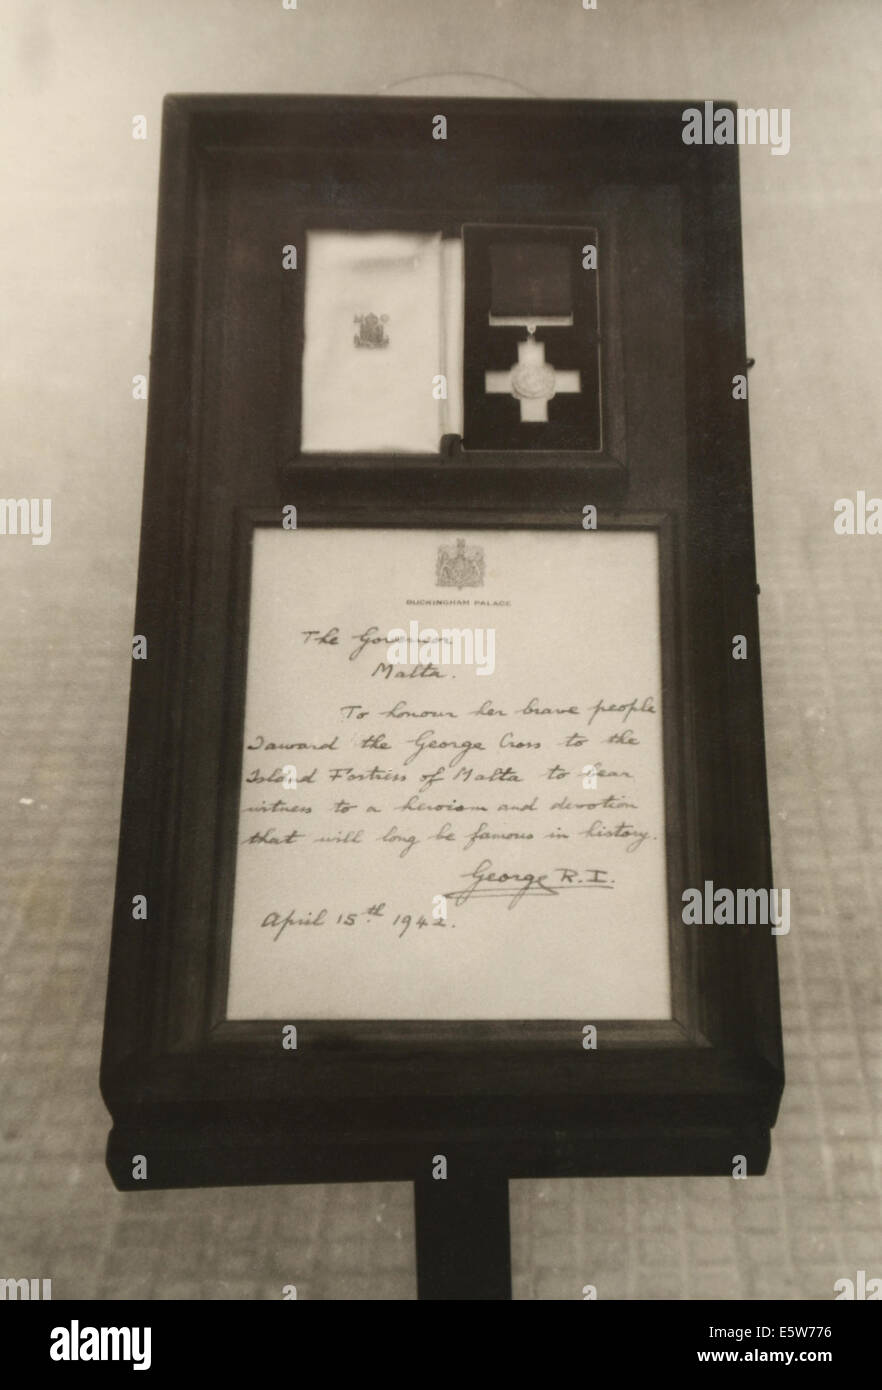 BUCKINGHAM PALACE
The Governor
Malta.
To honour her brave people
I award the George Cross to the
Island Fortress of Malta to bear
witness to a heroism and devotion
that will long be famous in history.
George R.I.
April 15th 1942.
alamy
alamy
alamy
a alamy stock photo
E5W776
www.alamy.com